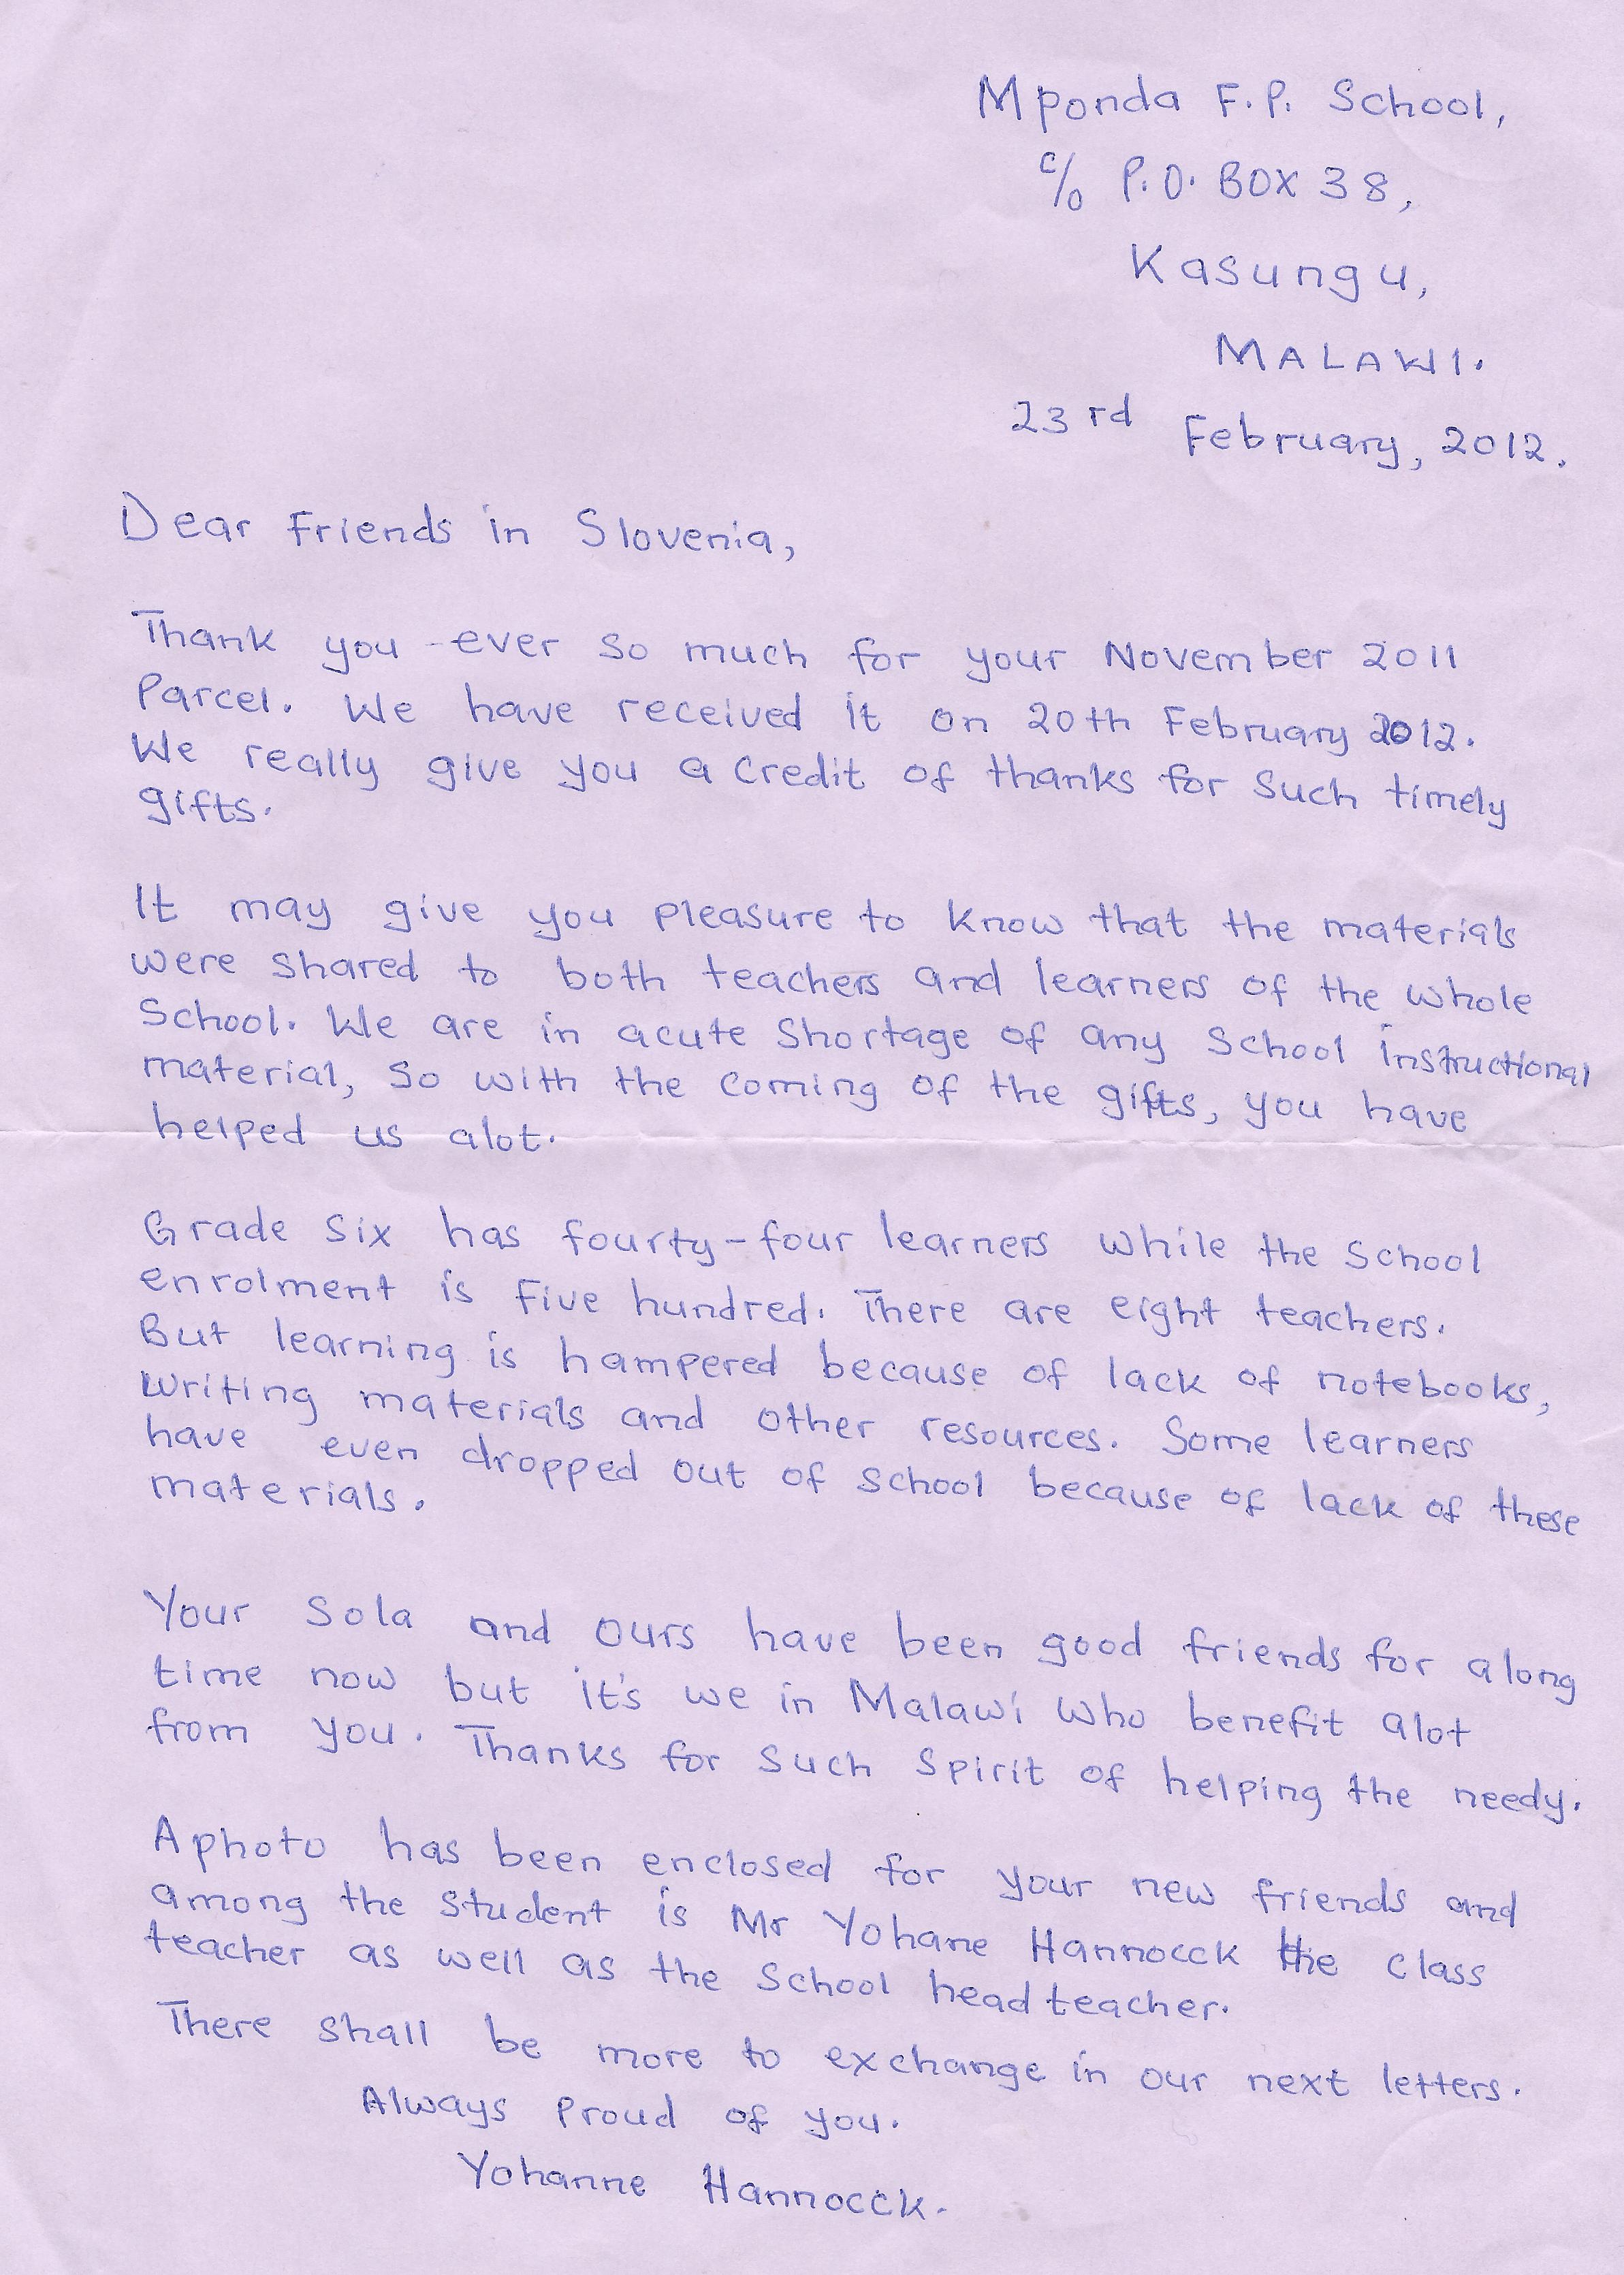 Mponda F.P. School,
c/o P.O. BOX 38,
Kasungu,
MALAWI.
23rd February, 2012.
Dear Friends in Slovenia,
Thank you ever so much for your November 2011
Parcel. We have received it on 20th February 2012.
We really give you a credit of thanks for such timely
gifts.
It may give you pleasure to know that the materials
were shared to both teachers and learners of the whole
School. We are in acute shortage of any school instructional
material, so with the coming of the gifts, you have
helped us alot.
Grade six has fourty-four learners while the school
enrolment is five hundred. There are eight teachers.
But learning is hampered because of lack of notebooks,
writing materials and other resources. Some learners
have even dropped out of school because of lack of these
materials.
Your Sola and ours have been good friends for along
time now but it's we in Malawi who benefit alot
from you. Thanks for such spirit of helping the needy.
Aphoto has been enclosed for your new friends and
among the student is Mr Yohane Hannocck the class
teacher as well as the school head teacher.
There shall be more to exchange in our next letters.
Always proud of you.
Yohanne Hannocck.